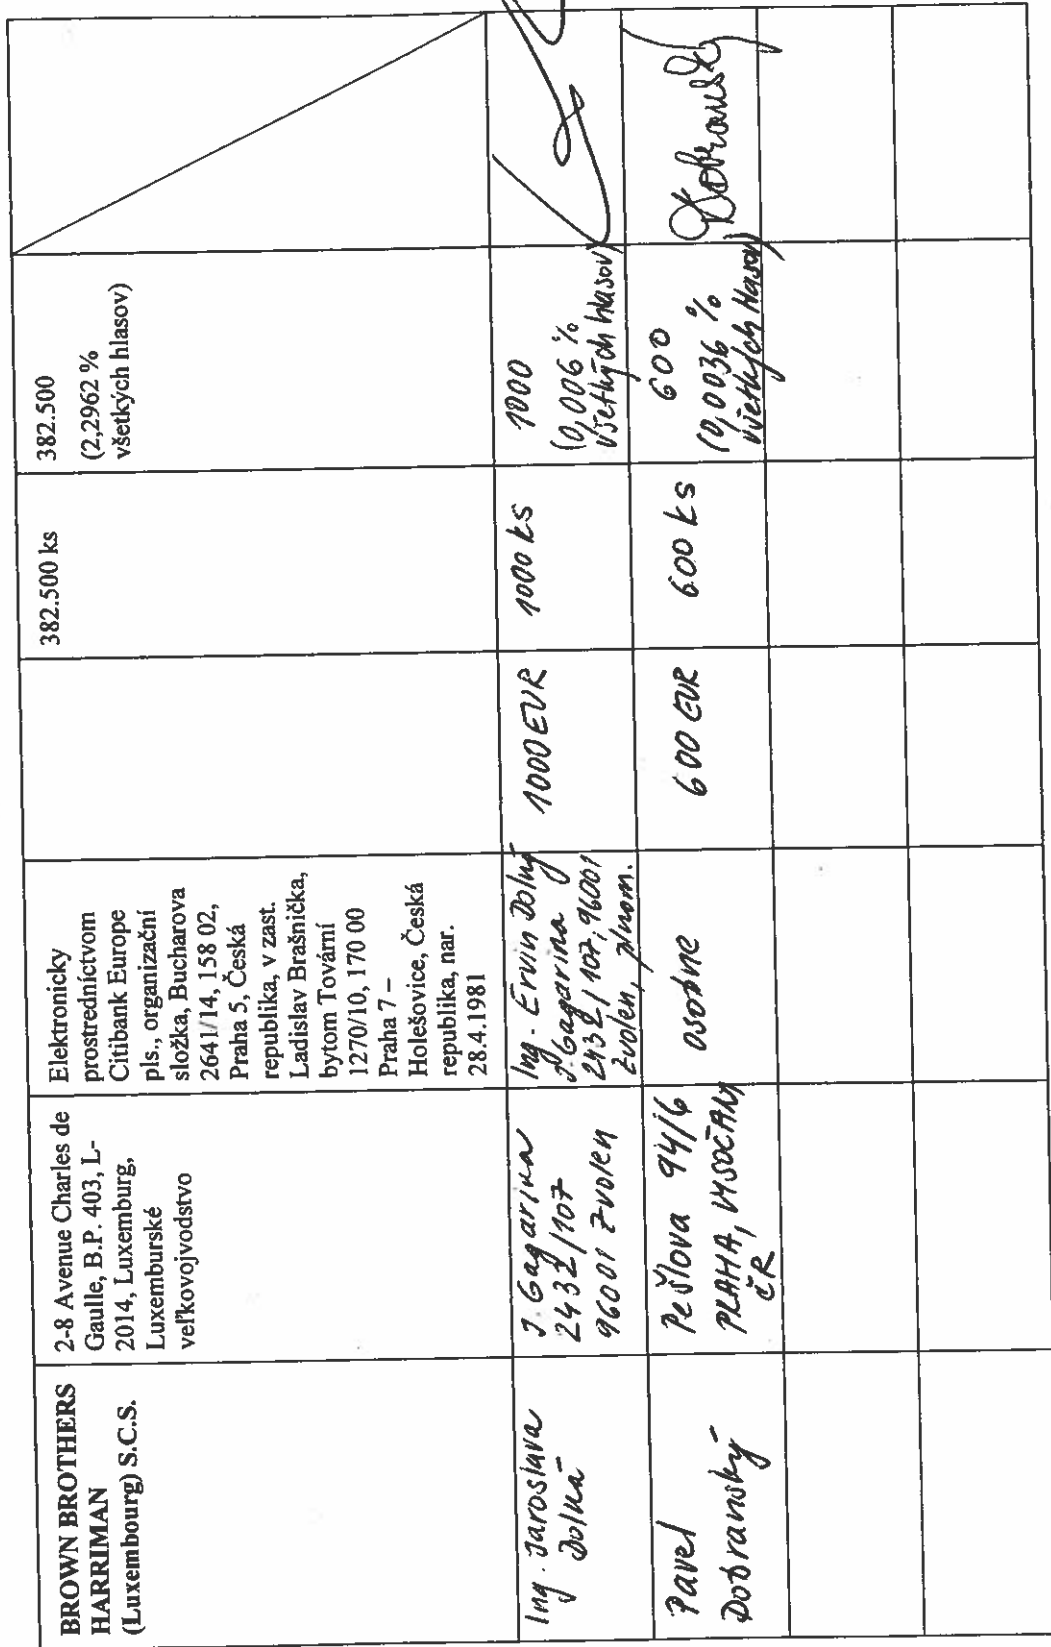 BROWN BROTHERS
HARRIMAN
(Luxembourg) S.C.S.
2-8 Avenue Charles de
Gaulle, B.P. 403, L-
2014, Luxemburg,
Luxemburské
veľkovojvodstvo
Elektronicky
prostredníctvom
Citibank Europe
pls., organizační
složka, Bucharova
2641/14, 158 02,
Praha 5, Česká
republika, v zast.
Ladislav Brašnička,
bytom Tovární
1270/10, 170 00
Praha 7 –
Holešovice, Česká
republika, nar.
28.4.1981
382.500 ks
382.500
(2,2962 %
všetkých hlasov)
Ing. Jaroslava
Dolná
J. Gagarina
2432/107
96001 Zvolen
Ing. Ervin Dolný
J. Gagarina
2432/107, 96001
Zvolen, plnom.
1000 EUR
1000 ks
1000
(0,006 %
všetkých hlasov)
Pavel
Dobranský
Pešlova 94/6
PRAHA, VYSOČANY
ČR
osobne
600 EUR
600 ks
600
(0,0036 %
všetkých hlasov)
Dobranský